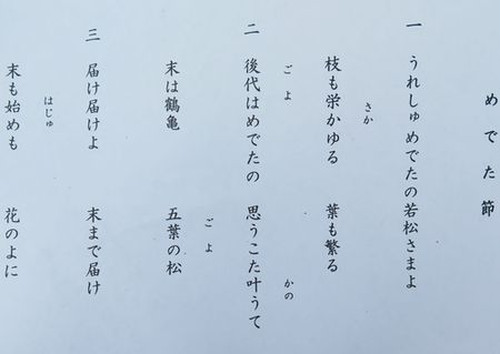 めでた節
一 うれしゅめでたの若松さまよ
さか
枝も栄かゆる 葉も繁る
ごよ かの
二 後代はめでたの 思うこた叶うて
ごよ
末は鶴亀 五葉の松
三 届け届けよ 末まで届け
はじゅ
末も始めも 花のよに